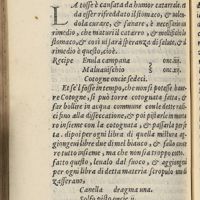 LA tosse è causata da humor catarrale, o
da esser rifreddato il stomaco, & uolendola curare, & sanare, è necessario
rimedio, che maturi il catarro, & mollifichi lo
stomaco, & così ui sarà speranza di salute, & il
rimedio è questo, cioè.
Recipe Enula campana onc.iii.
Maluauischio onc.iii.
Cotogne oncie sedeci.
Et se'l fusse in tempo, che non si potesse hauere
Cotogne, si può torre cotognata fatta, &
far bollire in acqua commune le
te che siano quasi disfatte, & poi pistarle in morta
ro insieme con la cotognata, & passarle per
ta. dipoi per ogni libra di quella mistura ag
giungeui libre due di mel bianco, & falo cuocere
tutto insieme, ma che non sia troppo cotto, &
fatto questo, leualo dal fuoco, & aggiongi
per ogni libra di detta materia scropuli uno di
zafferano,
Canella dragma una.
Solfo pisto oncie ii.